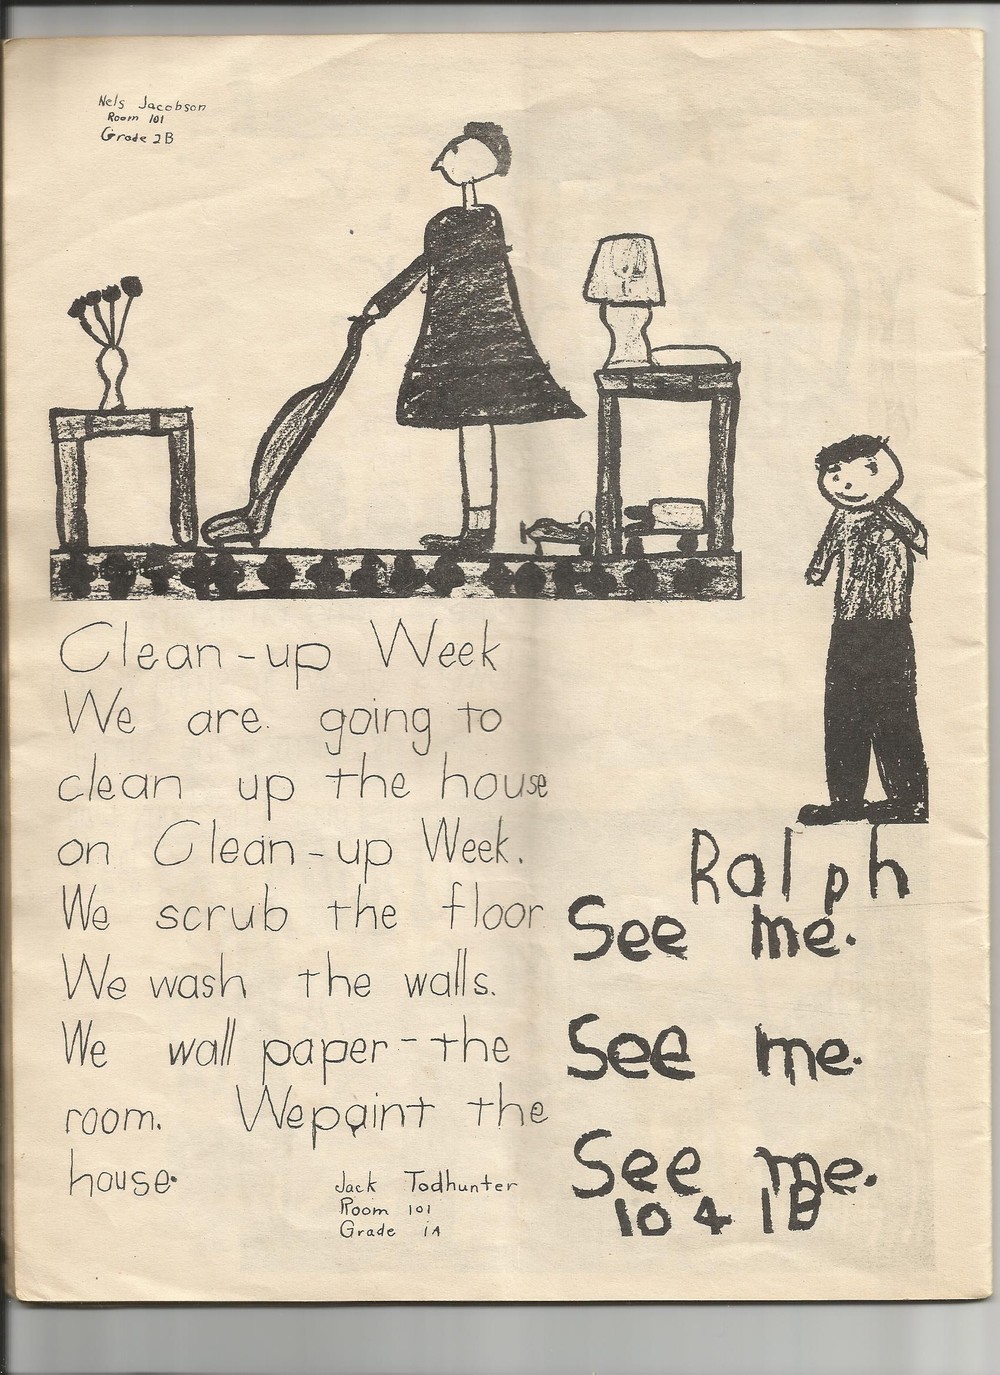 Nels Jacobson
Room 101
Grade 2B
Clean-up Week
We are going to
clean up the house
on Clean-up Week.
We scrub the floor
We wash the walls.
We wall paper-the
room. We paint the
house.
Jack Todhunter
Room 101
Grade 1A
Ralph
See me.
See me.
See me.
104 1B